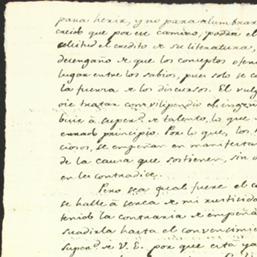 para herir, y no para alumbrar
creido que por ese camino, podria el
solitud el credito de su literatura,
desengaño de que los conceptos ofen
lugar entre los sabios, pues solo se c
la fuerza de los discursos. El vulg
vie tratar con vilipendio el ingeni
buie à superd de talento, lo que
errado principio. Por lo que, los
ciosos, se empeñan en manifestar
de la causa que sostienen, sin
en le contradice.
Pero sea qual fuere el c
se halle à cerca de mi rusticidad
tenido la contraria de empeña
suadirla hasta el convencimi
Superd de V. E. por que está ya